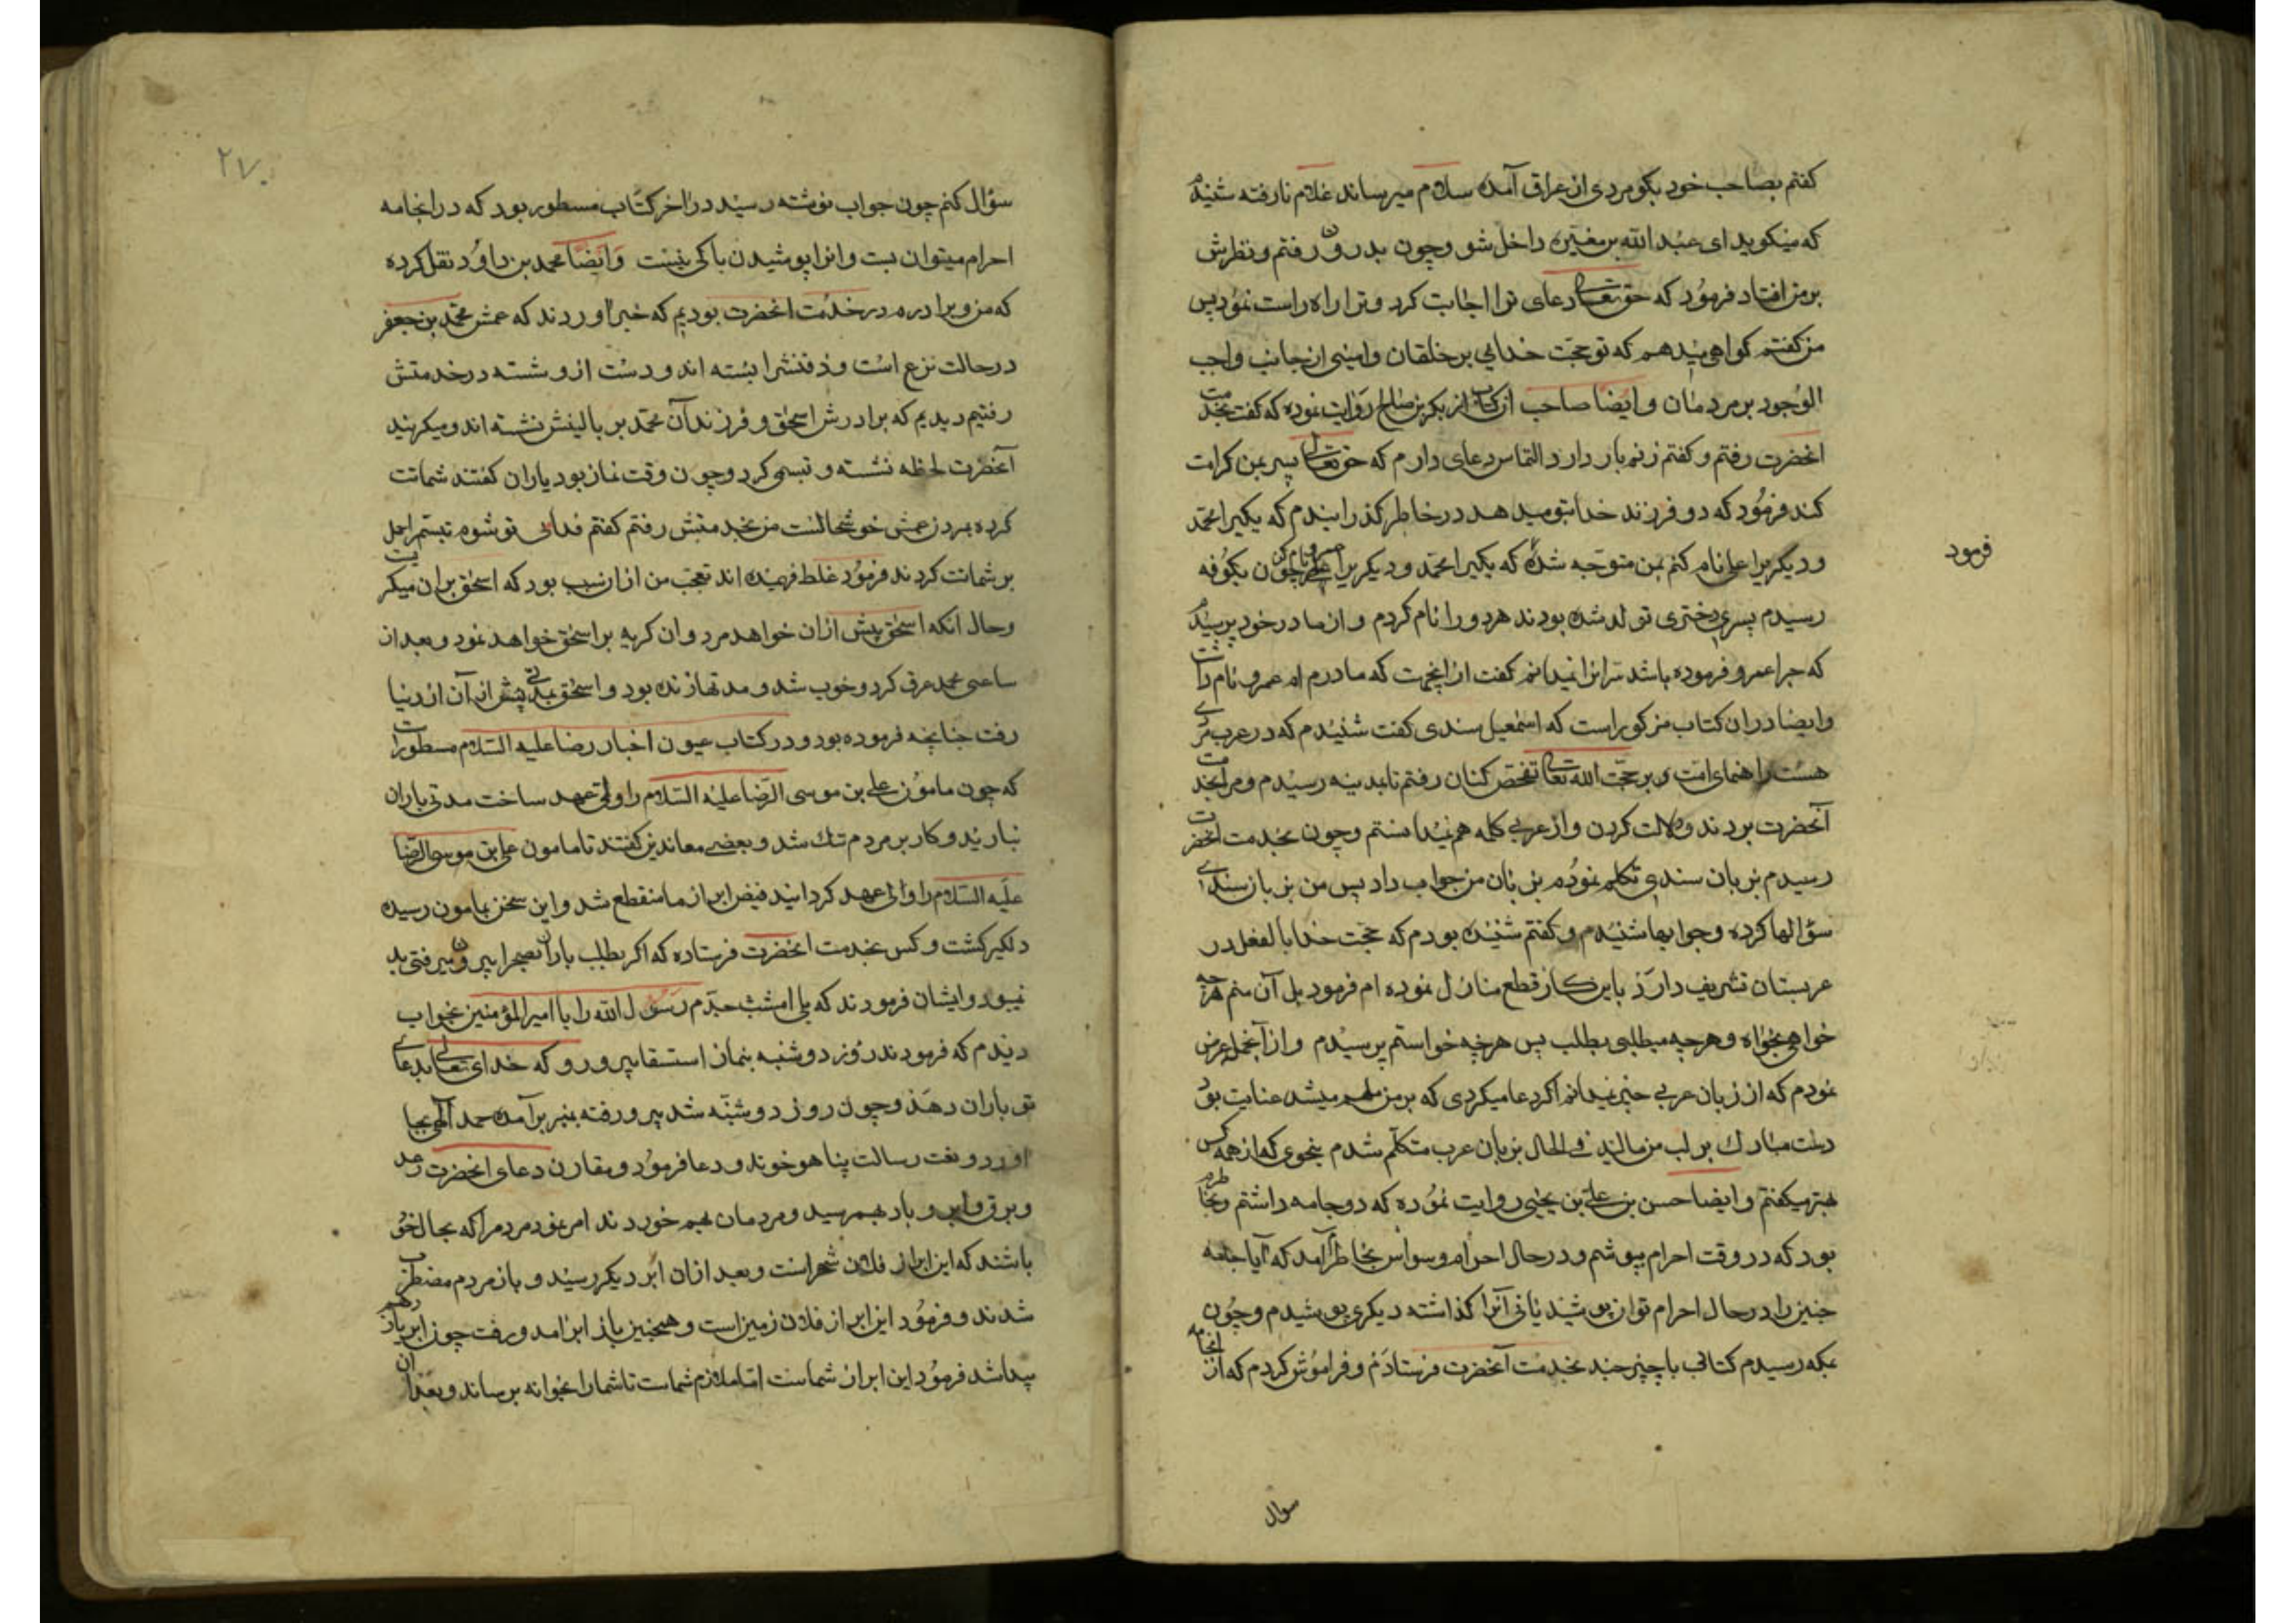 کفتم بصاحب خود بکو مردی از عراق آمده سلام میرساند غلام نارفته شنیدم
که میکوید ای عبد الله بن مغیره داخل شو وچون بدرون رفتم ونظرش
بر من افتاد فرمود که حق تعالی دعای ترا اجابت کرد وترا راه راست نمود پس
من کفتم کواهی میدهم که تو حجت خدایی بر خلقان وامینی از جانب واجب
الوجود بر مردمان وایضا صاحب از کتاب از بکر بن صالح روایت نموده که کفت بخدمت
انحضرت رفتم وکفتم زنم بار دارد التماس دعای دارم که حق تعالی پسر بمن کرامت
کند فرمود که دو فرزند خدا بتو میدهد در خاطر کذرانیدم که یکیرا محمد
ودیکریرا علی نام کنم بمن متوجه شده که یکیرا محمد ودیکریرا ام عمرو نام کن چون بکوفه
فرمود
رسیدم پسری ودختری تولد شده بودند هر دو را نام کردم واز مادر خود پرسیدم
که چرا عمرو فرموده باشد سر انرا نمیدانم کفت از اینجهت که مادرم ام عمرو نام داشت
وایضا دران کتاب مذکور است که اسمعیل سندی کفت شنیدم که در عرب مردی
هست راهنمای امت وبر حجت الله تعالی تفحص کنان رفتم تا بمدینه رسیدم ومرا بخدمت
آنحضرت بردند ودلالت کردن واز عربی کلمه هم نمیدانستم وچون بخدمت انحضرت
رسیدم بزبان سندی تکلم نموده بزبان من جواب داد پس من بزبان سندی
سؤالها کرده وجوابها شنیدم وکفتم شنیده بودم که حجت خدا بالفعل در
عربستان تشریف دارد باین کار قطع منازل نموده ام فرمود بل آن منم هر چه
خواهی بخواه وهر چه میطلبی بطلب پس هر چه خواستم پرسیدم واز آنجمله عرض
نمودم که از زبان عربی چیزی نمیدانم اکر دعا میکردی که بر من ملهم میشد عنایت بود
دست مبارک بر لب من مالید فی الحال بزبان عرب متکلم شدم بنحوی که از همه کس
بهتر میکفتم وایضا حسن بن علی بن یحیی روایت نموده که دو جامه داشتم وبخاطرم
بود که در وقت احرام بپوشم ودر حال احرام وسواس بخاطرم آمد که آیا جامه
چنین را در حال احرام توان پوشید یا نی آنرا کذاشته دیکری پوشیدم وچون
بمکه رسیدم کتابی با چیز چند بخدمت آنحضرت فرستادم وفراموش کردم که از انجامه
سوال
۲۷۰
سؤال کنم چون جواب نوشته رسید در اخر کتاب مسطور بود که در انجامه
احرام میتوان بست وانرا پوشیدن باکی نیست وایضا محمد بن داود نقل کرده
که من وبرادرم در خدمت انحضرت بودیم که خبر اوردند که عمش محمد بن جعفر
در حالت نزع است وذقنشرا بسته اند ودست از و شسته در خدمتش
رفتیم دیدیم که برادرش اسحق وفرزندان محمد بر بالینش نشسته اند ومیکریند
آنحضرت لحظه نشسته وتبسمی کرد وچون وقت نماز بود یاران کفتند شماتت
کرده بمردن عمش خوشحالست من بخدمتش رفتم کفتم فدای تو شوم تبسم را حمل
بر شماتت کردند فرمود غلط فهمیده اند تعجب من از ان سبب بود که اسحق بران میکریست
وحال آنکه اسحق پیش ازان خواهد مرد وان کریه بر اسحق خواهد نمود وبعد از
ساعتی محمد عرق کرد وخوب شد ومدتها زنده بود واسحق بمدتی پیش از آن از دنیا
رفت چنانچه فرموده بود ودر کتاب عیون اخبار رضا علیه السلام مسطور است
که چون مامون علی بن موسی الرضا علیه السلام را ولی عهد ساخت مدتی باران
نبارید وکار بر مردم تنک شد وبعضی معاندین کفتند تا مامون علی بن موسی الرضا
علیه السلام را والی عهد کردانید فیض ابر از ما منقطع شد واین سخن بمامون رسیده
دلکیر کشت وکس بخدمت انحضرت فرستاده که اکر بطلب باران بصحرا بیرون میرفتی بد
نمیبود وایشان فرمودند که بلی امشب جدم رسول الله را با امیر المؤمنین بخواب
دیدم که فرمودند روز دوشنبه بنماز استسقا بیرون رو که خدای تعالی بدعای
تو باران دهد وچون روز دوشنبه شد بیرون رفته بمنبر برآمده حمد آلهی بجا
اورد ونعت رسالت پناه خوند ودعا فرمود ومقارن دعای انحضرت رعد
وبرق وابر وباد بهم رسید ومردمان بهم خوردند امر نمود مردم را که بحال خود
باشند که این ابر از فلان شهر است وبعد ازان ابر دیکر رسید وباز مردم مضطرب
شدند وفرمود این ابر از فلان زمین است وهمچنین باز ابر امد ورفت چون ابر یازدهم
پیدا شد فرمود این ابر ازان شماست اما ملازم شماست تا شما را بخوانه برساند وبعد ازان